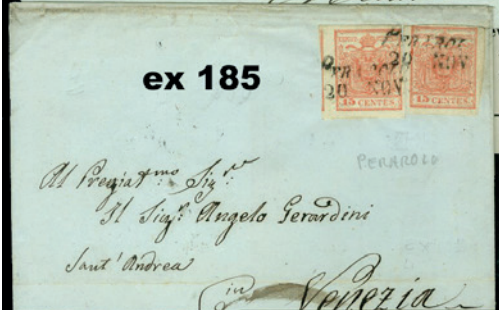 ex 185
PERAROL
20 NOV
PERAROL
20 NOV
15 CENTES.
15 CENTES.
PERAROLO
Al Pregiat.mo Sig.re
Il Sig.r Angelo Gerardini
Sant' Andrea
in Venezia